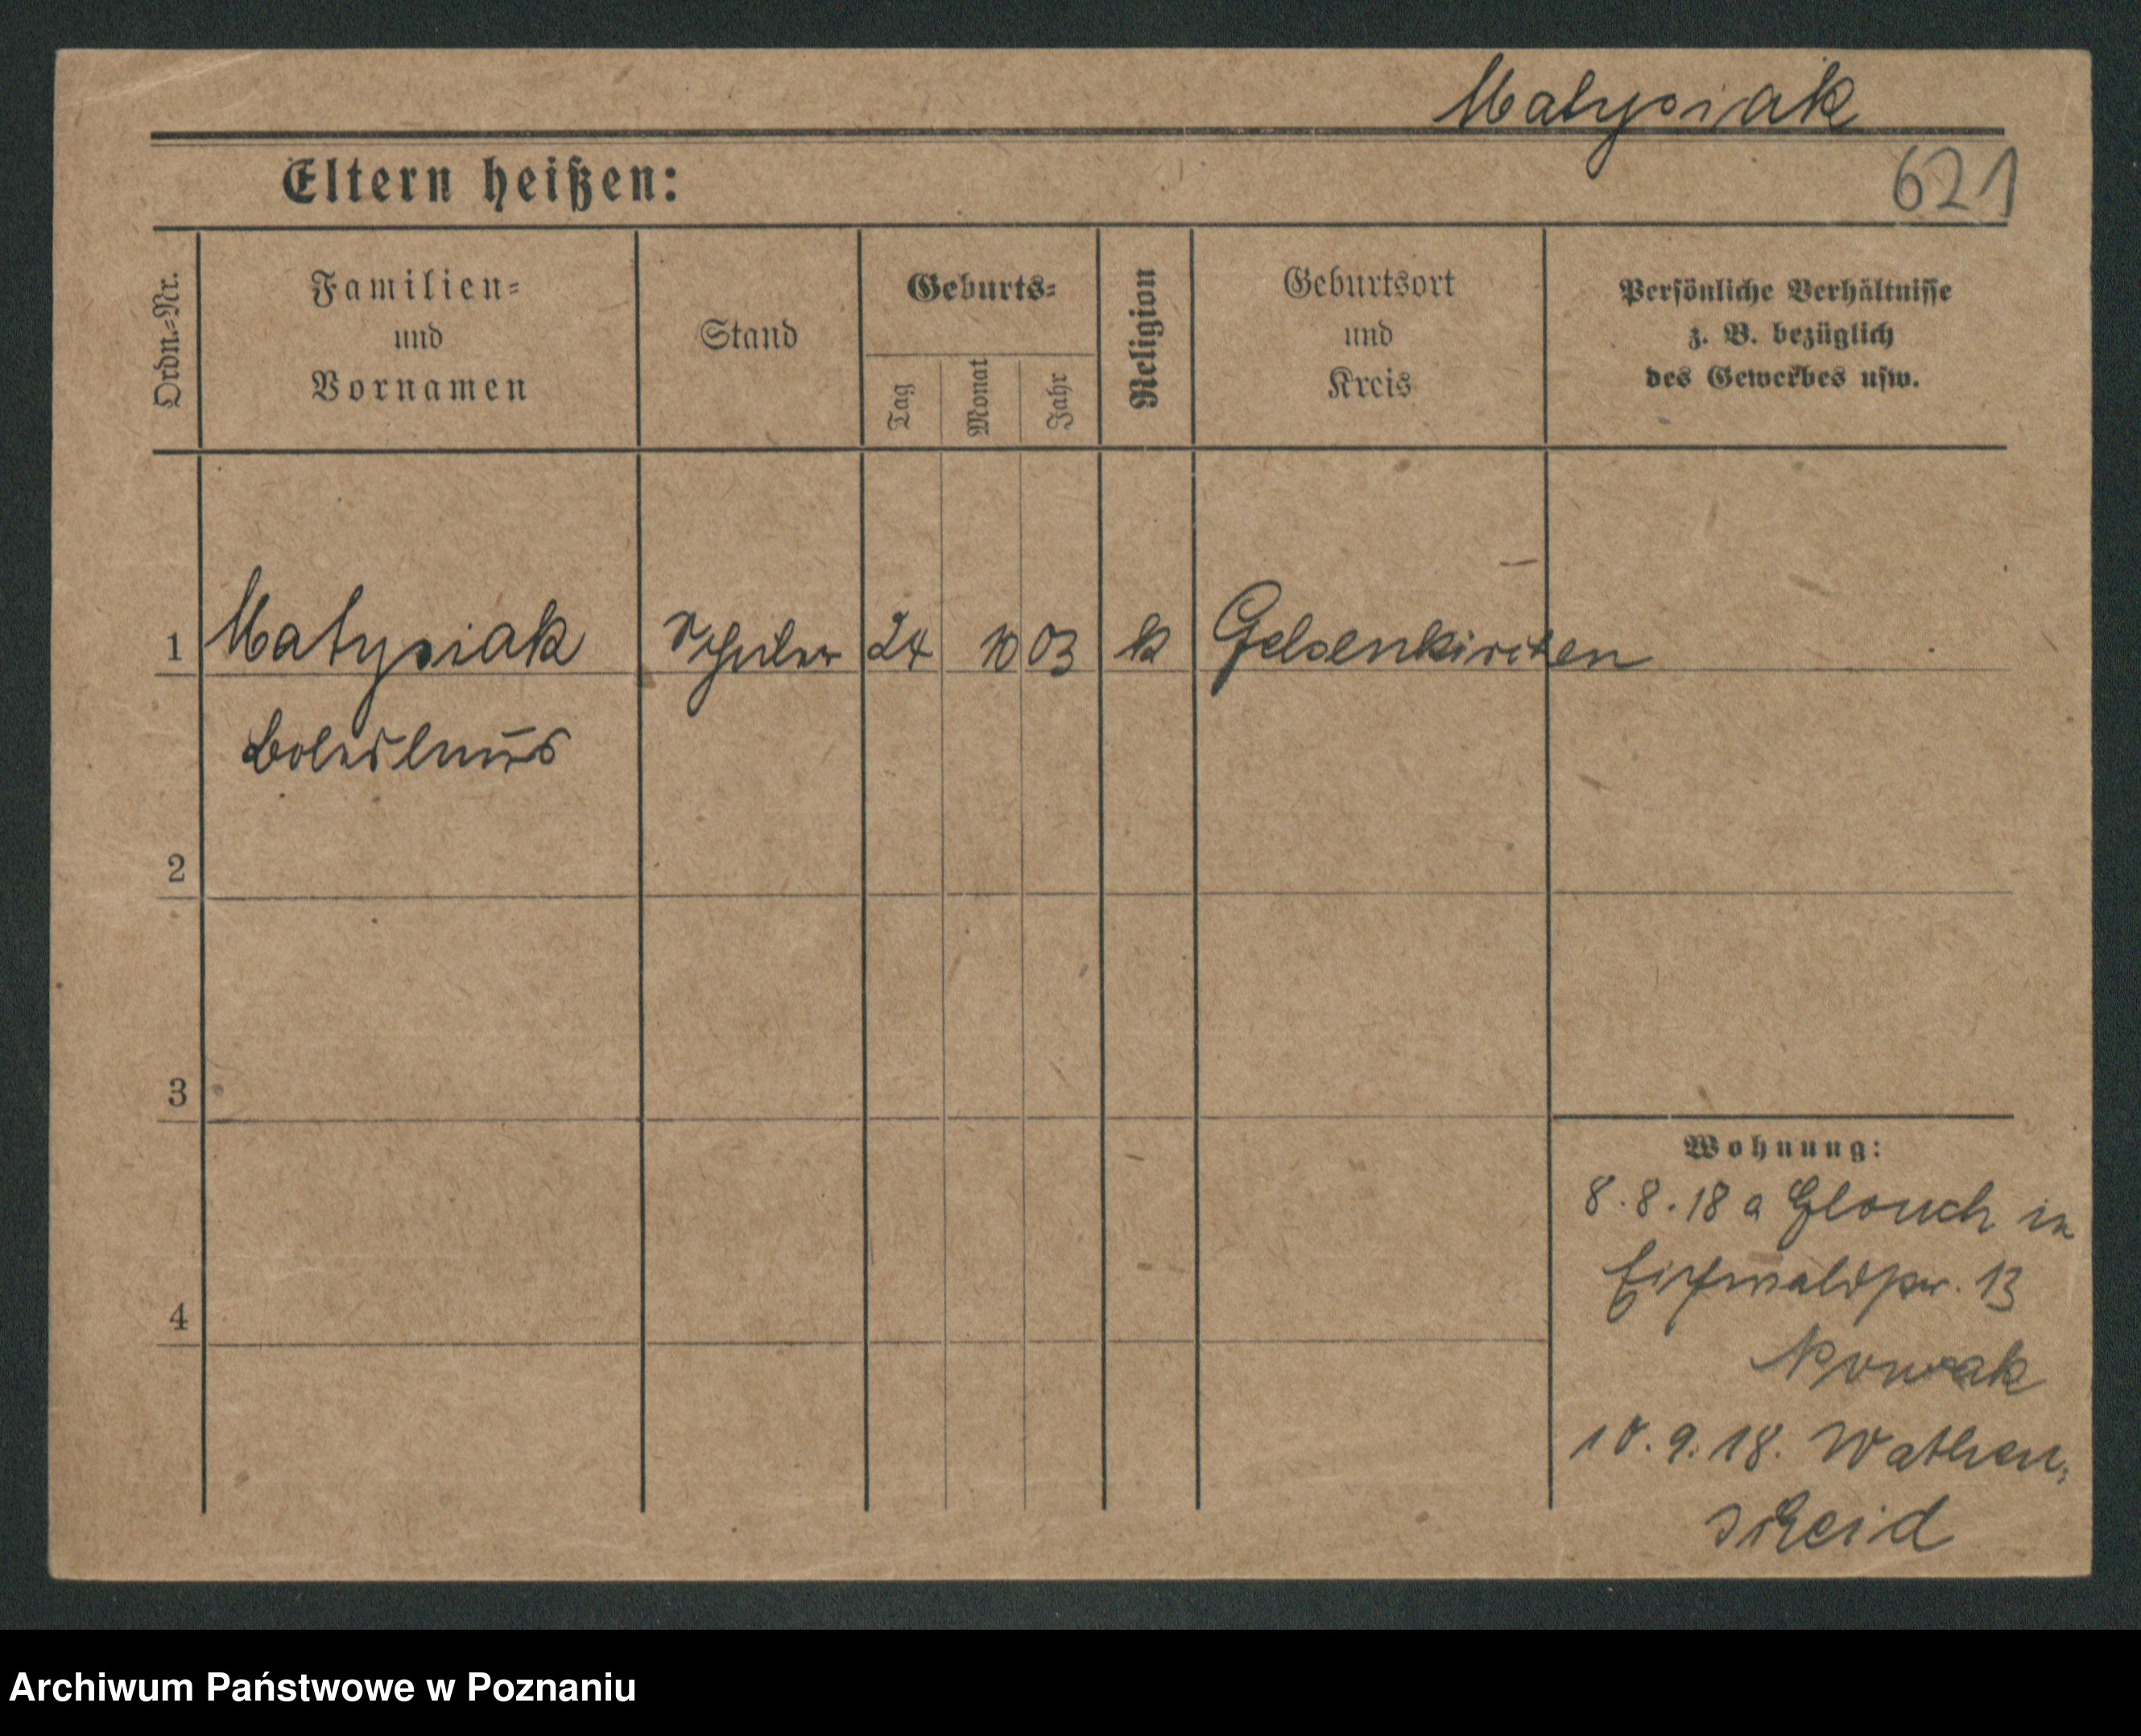 Matysiak
Eltern heißen:
621
Ordn.=Nr.
Familien=
und
Vornamen
Stand
Geburts=
Tag
Monat
Jahr
Religion
Geburtsort
und
Kreis
Persönliche Verhältnisse
z. B. bezüglich
des Gewerbes usw.
1 Matysiak Schüler 24 10 03 k Gelsenkirchen
2
3
4
Wohnung:
8.8.18 a in
Eichwaldstr. 13
Nowak
10.9.18. Watten=
scheid
Archiwum Państwowe w Poznaniu